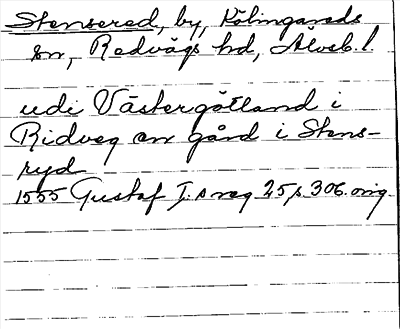 Stensered, by, Kölingareds
sn, Redvägs hd, Älvsb. l.
udi Västergötland i
Ridveg en gård i Stens-
ryd
1555 Gustaf I:s reg 25 s 306. orig.